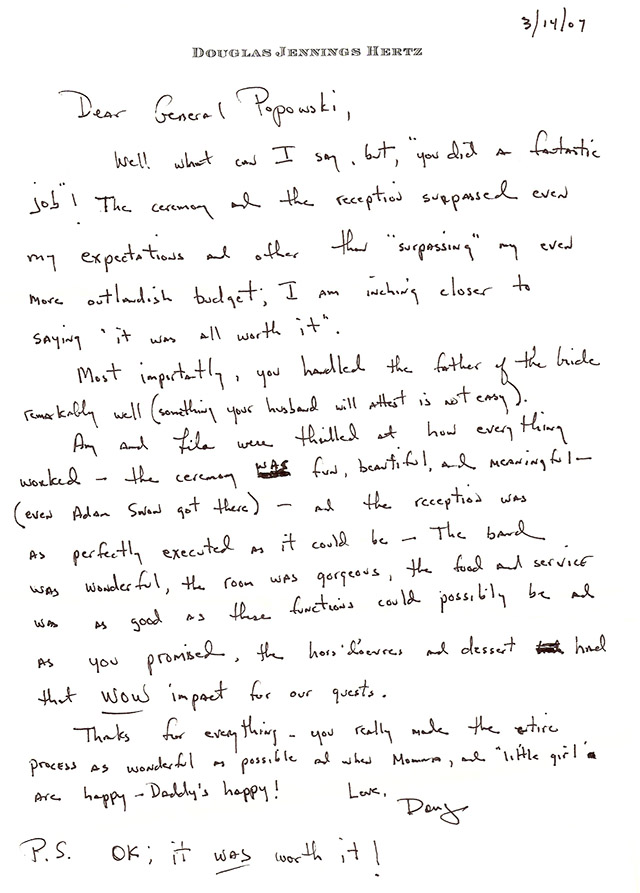 3/14/07
DOUGLAS JENNINGS HERTZ
Dear General Popowski,
Well! what can I say, but, "you did a fantastic
job"! The ceremony and the reception surpassed even
my expectations and other than "surpassing" my even
more outlandish budget; I am inching closer to
saying "it was all worth it".
Most importantly, you handled the father of the bride
remarkably well (something your husband will attest is not easy).
Amy and Lila were thrilled at how everything
worked – the ceremony was fun, beautiful, and meaningful –
(even Adam got there) – and the reception was
as perfectly executed as it could be – The band
was wonderful, the room was gorgeous, the food and service
was as good as these functions could possibly be and
as you promised, the hors d'oevres and dessert had
that WOW impact for our guests.
Thanks for everything – you really made the entire
process as wonderful as possible and when Momma, and "little girl"
are happy – Daddy's happy!
Love,
Doug
P.S. OK; it was worth it!